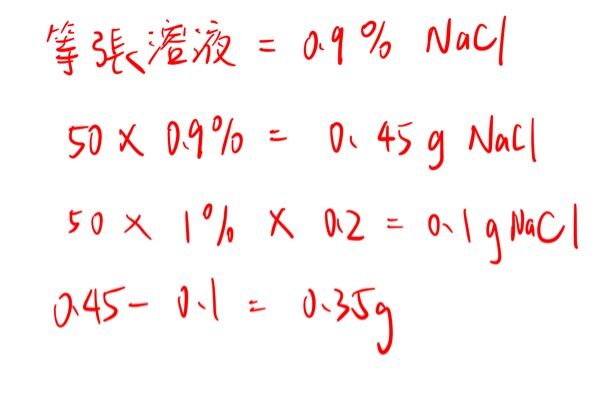 等張溶液 = 0.9% NaCl
50 × 0.9% = 0.45g NaCl
50 × 1% × 0.2 = 0.1g NaCl
0.45 - 0.1 = 0.35g